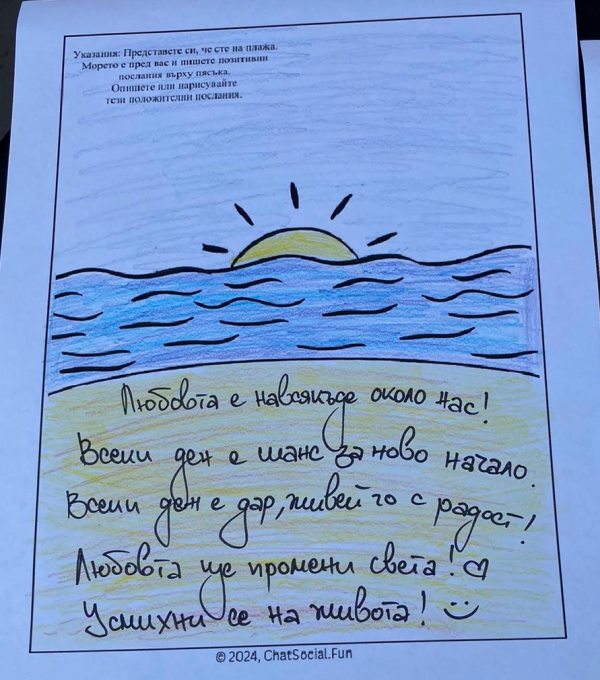 Указания: Представете си, че сте на плажа.
Морето е пред вас и пишете позитивни
послания върху пясъка.
Опишете или нарисувайте
тези положителни послания.
Любовта е навсякъде около нас!
Всеки ден е шанс за ново начало.
Всеки ден е дар, живей го с радост!
Любовта ще промени света! ♡
Усмихни се на живота! :)
© 2024, ChatSocial.Fun